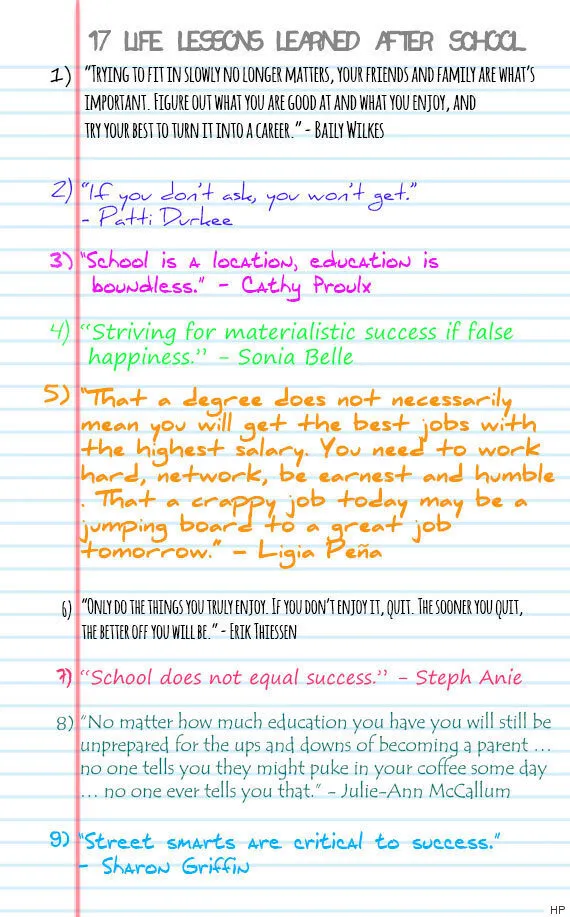 17 LIFE LESSONS LEARNED AFTER SCHOOL
1) "TRYING TO FIT IN SLOWLY NO LONGER MATTERS, YOUR FRIENDS AND FAMILY ARE WHAT'S
IMPORTANT. FIGURE OUT WHAT YOU ARE GOOD AT AND WHAT YOU ENJOY, AND
TRY YOUR BEST TO TURN IT INTO A CAREER." - BAILY WILKES
2) "If you don't ask, you won't get."
- Patti Durkee
3) "School is a location, education is
boundless." - Cathy Proulx
4) "Striving for materialistic success if false
happiness." - Sonia Belle
5) "That a degree does not necessarily
mean you will get the best jobs with
the highest salary. You need to work
hard, network, be earnest and humble
. That a crappy job today may be a
jumping board to a great job
tomorrow." - Ligia Peña
6) "ONLY DO THE THINGS YOU TRULY ENJOY. IF YOU DON'T ENJOY IT, QUIT. THE SOONER YOU QUIT,
THE BETTER OFF YOU WILL BE." - ERIK THIESSEN
7) "School does not equal success." - Steph Anie
8) "No matter how much education you have you will still be
unprepared for the ups and downs of becoming a parent ...
no one tells you they might puke in your coffee some day
... no one ever tells you that." - Julie-Ann McCallum
9) "Street smarts are critical to success."
- Sharon Griffin
HP